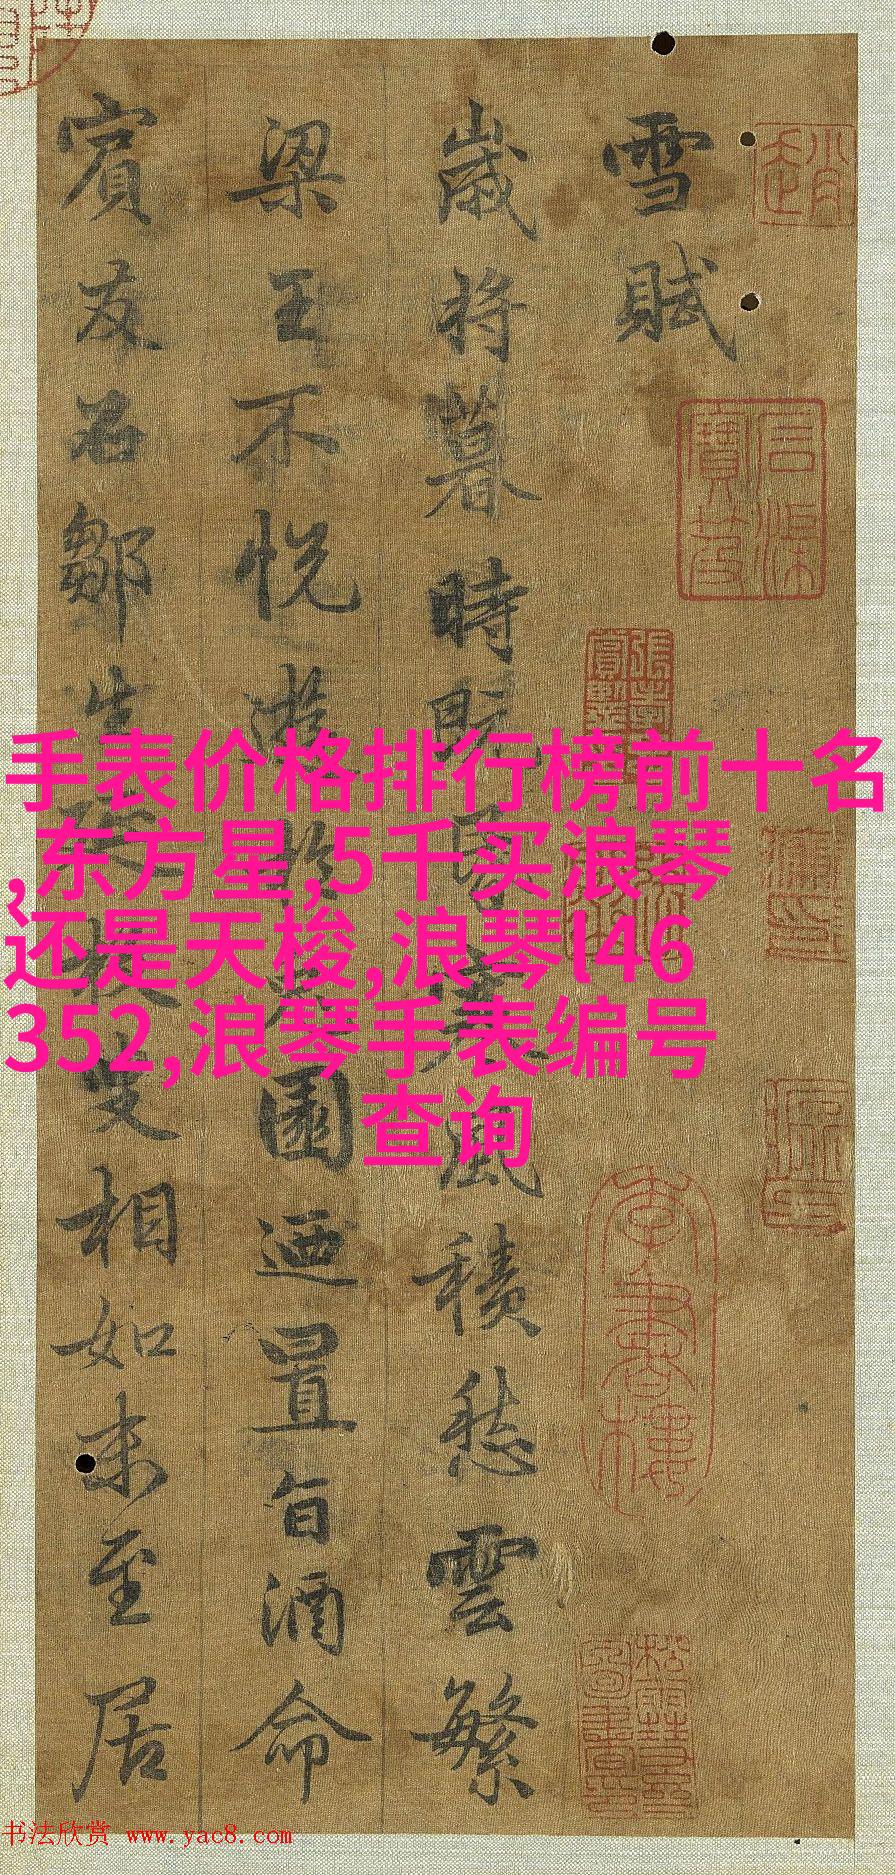 雪賦
歲将暮時既昏寒風積愁雲繁
梁王不悦游於兔園迺置旨酒命
賓友召鄒生延枚叟相如末至居
手表价格排行榜前十名
,东方星,5千买浪琴
还是天梭,浪琴l46
352,浪琴手表编号
查询
书法欣赏 www.yac8.com